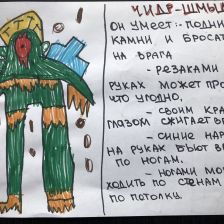 ЧИДР-ШМЫ
ОН УМЕЕТ:- ПОДНИ
КАМНИ И БРОСАТ
НА ВРАГА
- РЕЗАКАМИ
РУКАХ МОЖЕТ ПРО
ЧТО УГОДНО,
- СВОИМ КРА
ГЛАЗОМ СЖИГАЕТ В
- СИНИЕ НАР
НА РУКАХ БЬЮТ В
ПО НОГАМ.
- НОГАМИ МО
ХОДИТЬ ПО СТЕНАМ
ПО ПОТОЛКУ.